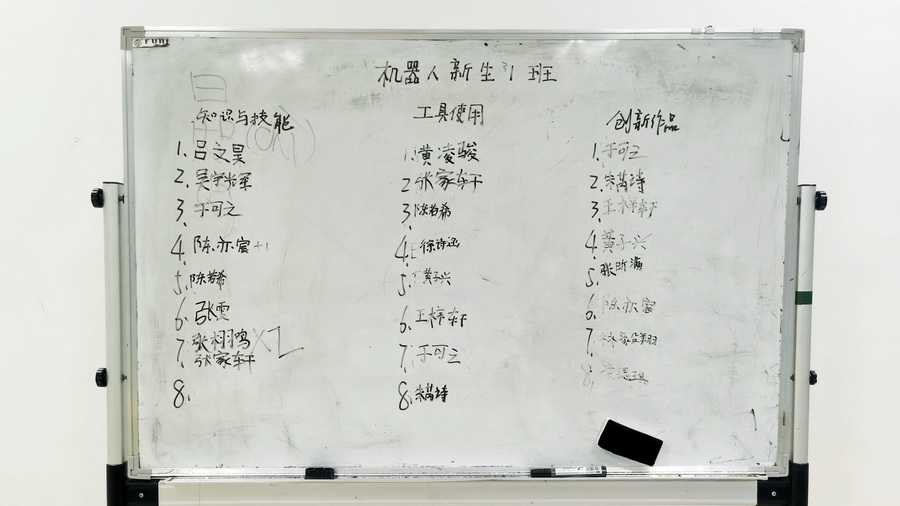 机器人新生21班
知识与技能
1. 吕文昊
2. 吴宇辉
3. 于可之
4. 陈亦宸 +1
5. 陈若希
6. 张雯
7. 张栩鸣 X2
张家轩
8.
工具使用
1. 黄凌骏
2. 张家轩
3. 陈若希
4. 徐诗涵
5. 黄子兴
6. 王梓轩
7. 于可之
8. 朱芮诗
创新作品
1. 于可之
2. 朱芮诗
3. 王梓轩
4. 黄子兴
5. 张昕
6. 陈亦宸
7. 林家
8.